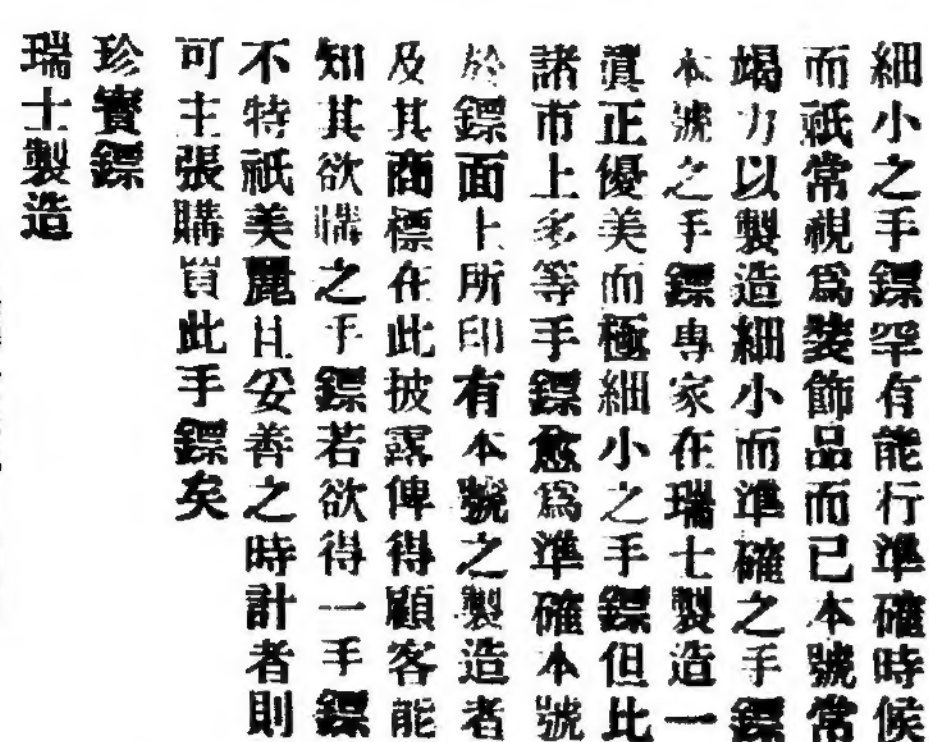 細小之手鏢罕有能行準確時候
而祇常視爲裝飾品而已本號常
竭力以製造細小而準確之手鏢
本號之手鏢專家在瑞士製造一
眞正優美而極細小之手鏢但比
諸市上多等手鏢愈爲準確本號
於鏢面上所印有本號之製造者
及其商標在此披露俾得顧客能
知其欲購之手鏢若欲得一手鏢
不特祇美麗且妥善之時計者則
可主張購買此手鏢矣
珍寶鏢
瑞士製造